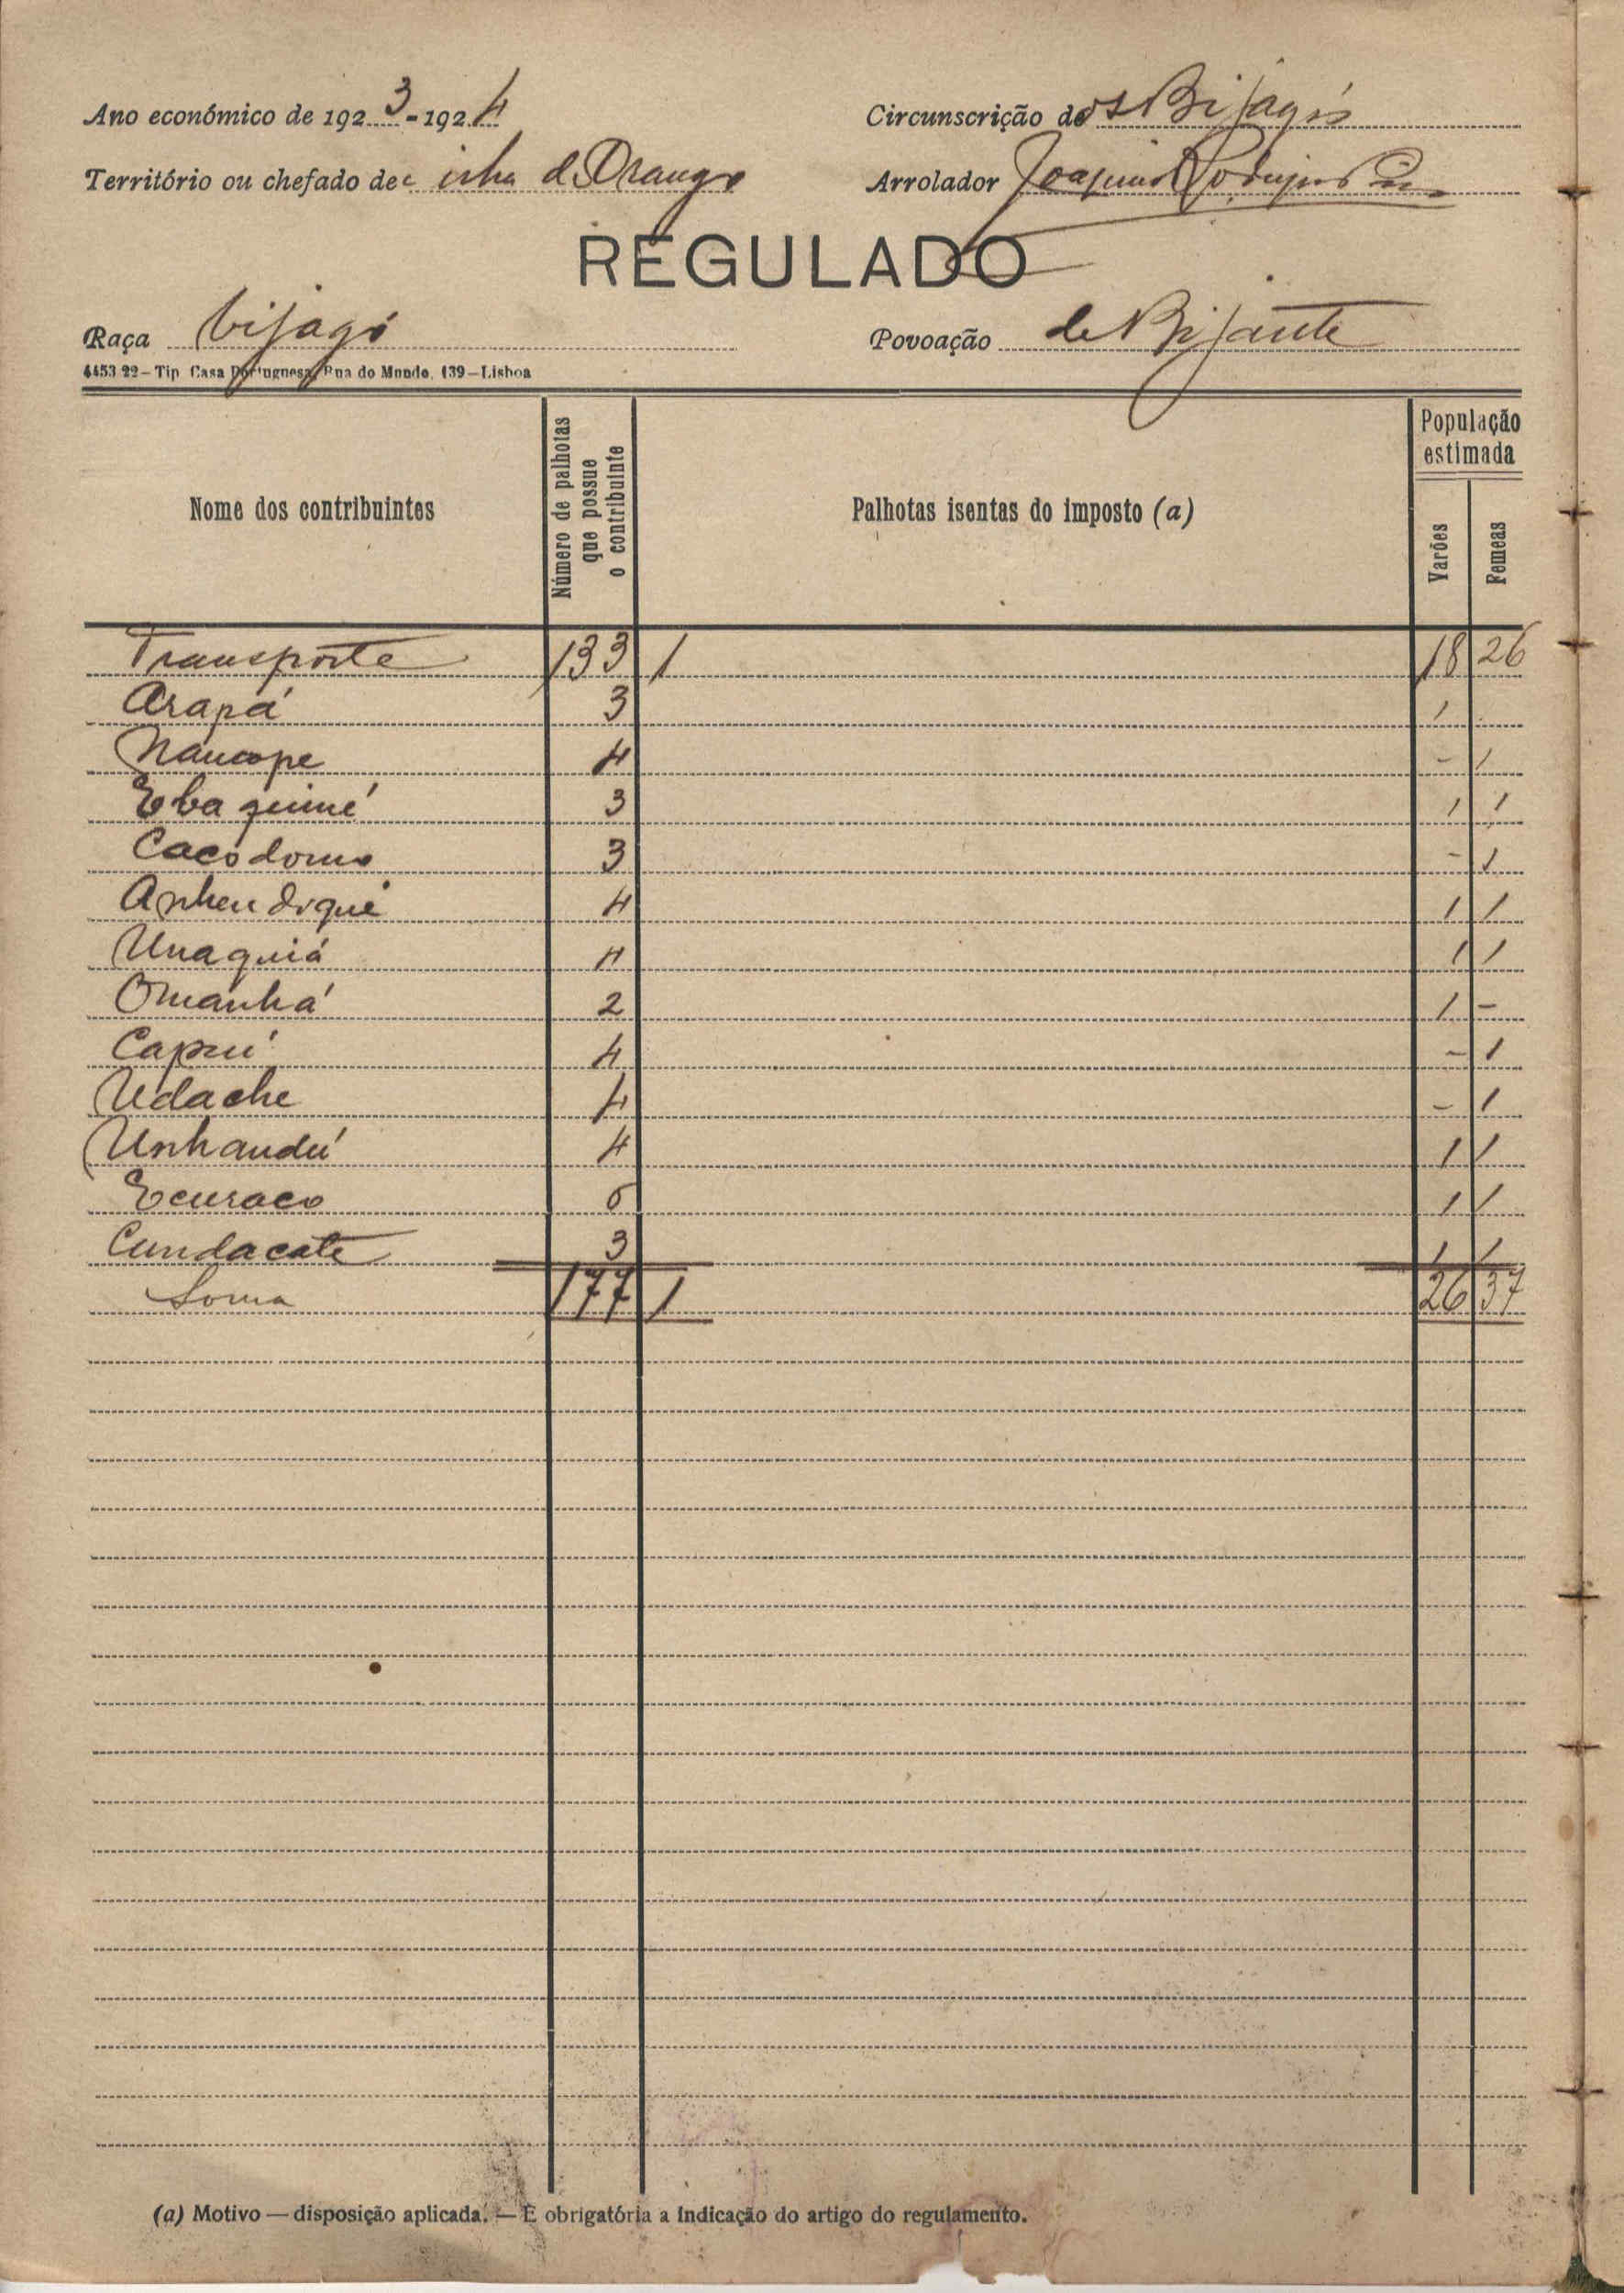 Ano económico de 1923-1924
Circunscrição dos Bijagós
Território ou chefado de ilha de Orango
Arrolador Joaquim Rodrigues
REGULADO
Raça bijagó
Povoação de Bijante
4453 22 – Tip Casa Portuguesa, Rua do Mundo, 139 – Lisboa
Nome dos contribuintes
Número de palhotas que possue o contribuinte
Palhotas isentas do imposto (a)
População estimada
Varões
Femeas
Transporte 133 1 18 26
Arapá 3 1
Naucope 4 - 1
Ebaquimé 3 1 1
Cacódomo 3 - 1
Anhendoqué 4 1 1
Unaquiá 4 1 1
Omanhá 2 1 -
Capuí 4 - 1
Udache 4 - 1
Unhandú 4 1 1
Ecuraco 6 1 1
Cundacate 3 1 1
Soma 177 1 26 37
(a) Motivo — disposição aplicada. — É obrigatória a indicação do artigo do regulamento.